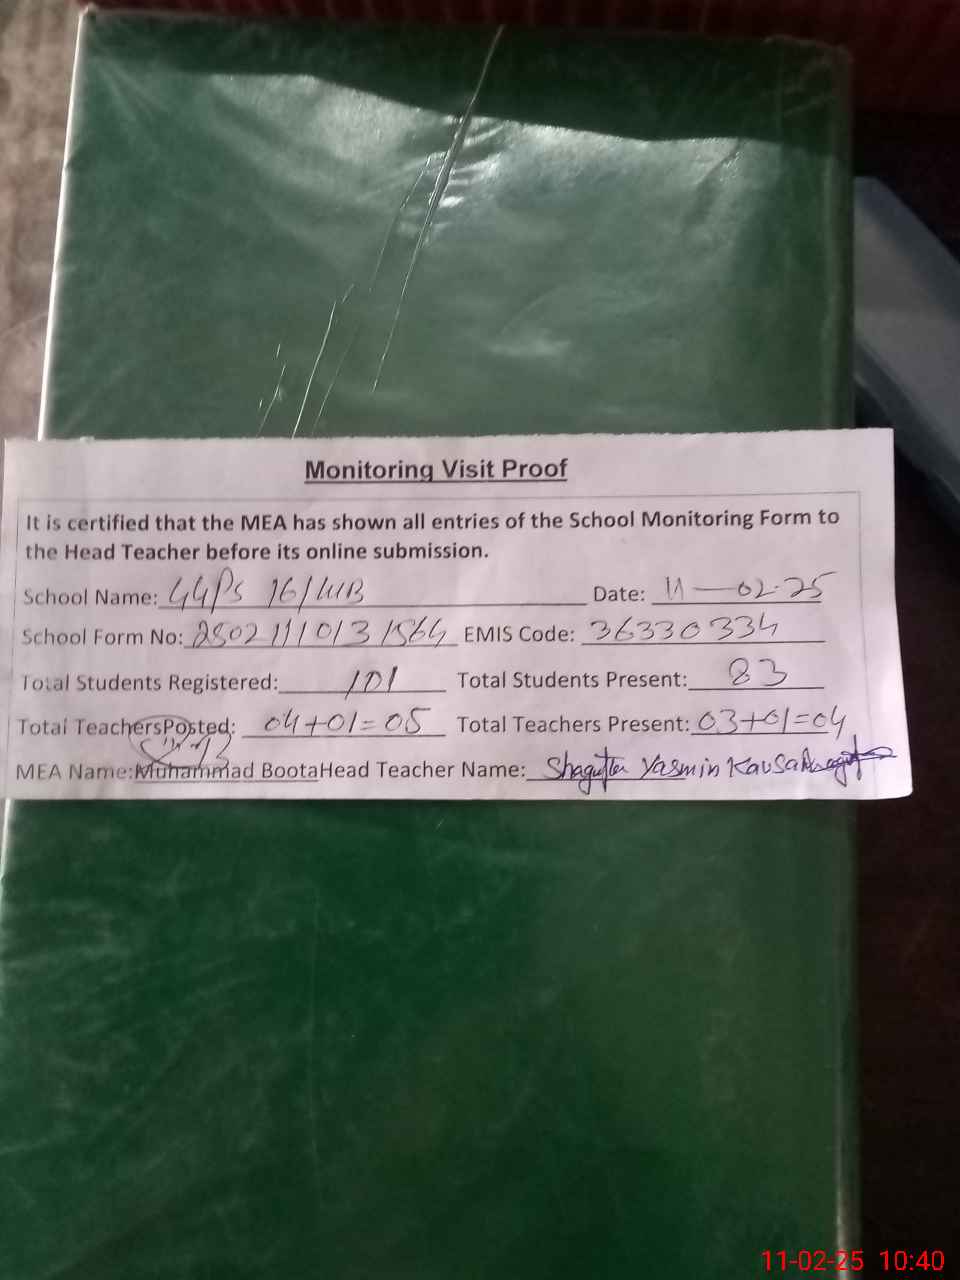 Monitoring Visit Proof
It is certified that the MEA has shown all entries of the School Monitoring Form to
the Head Teacher before its online submission.
School Name: GGPS 16/WB Date: 11-02-25
School Form No: 2502111013 1564 EMIS Code: 36330334
Total Students Registered: 101 Total Students Present: 83
Total TeachersPosted: 04+01=05 Total Teachers Present: 03+01=04
MEA Name:Muhammad BootaHead Teacher Name: Shagufta Yasmin Kausar
11-02-25 10:40